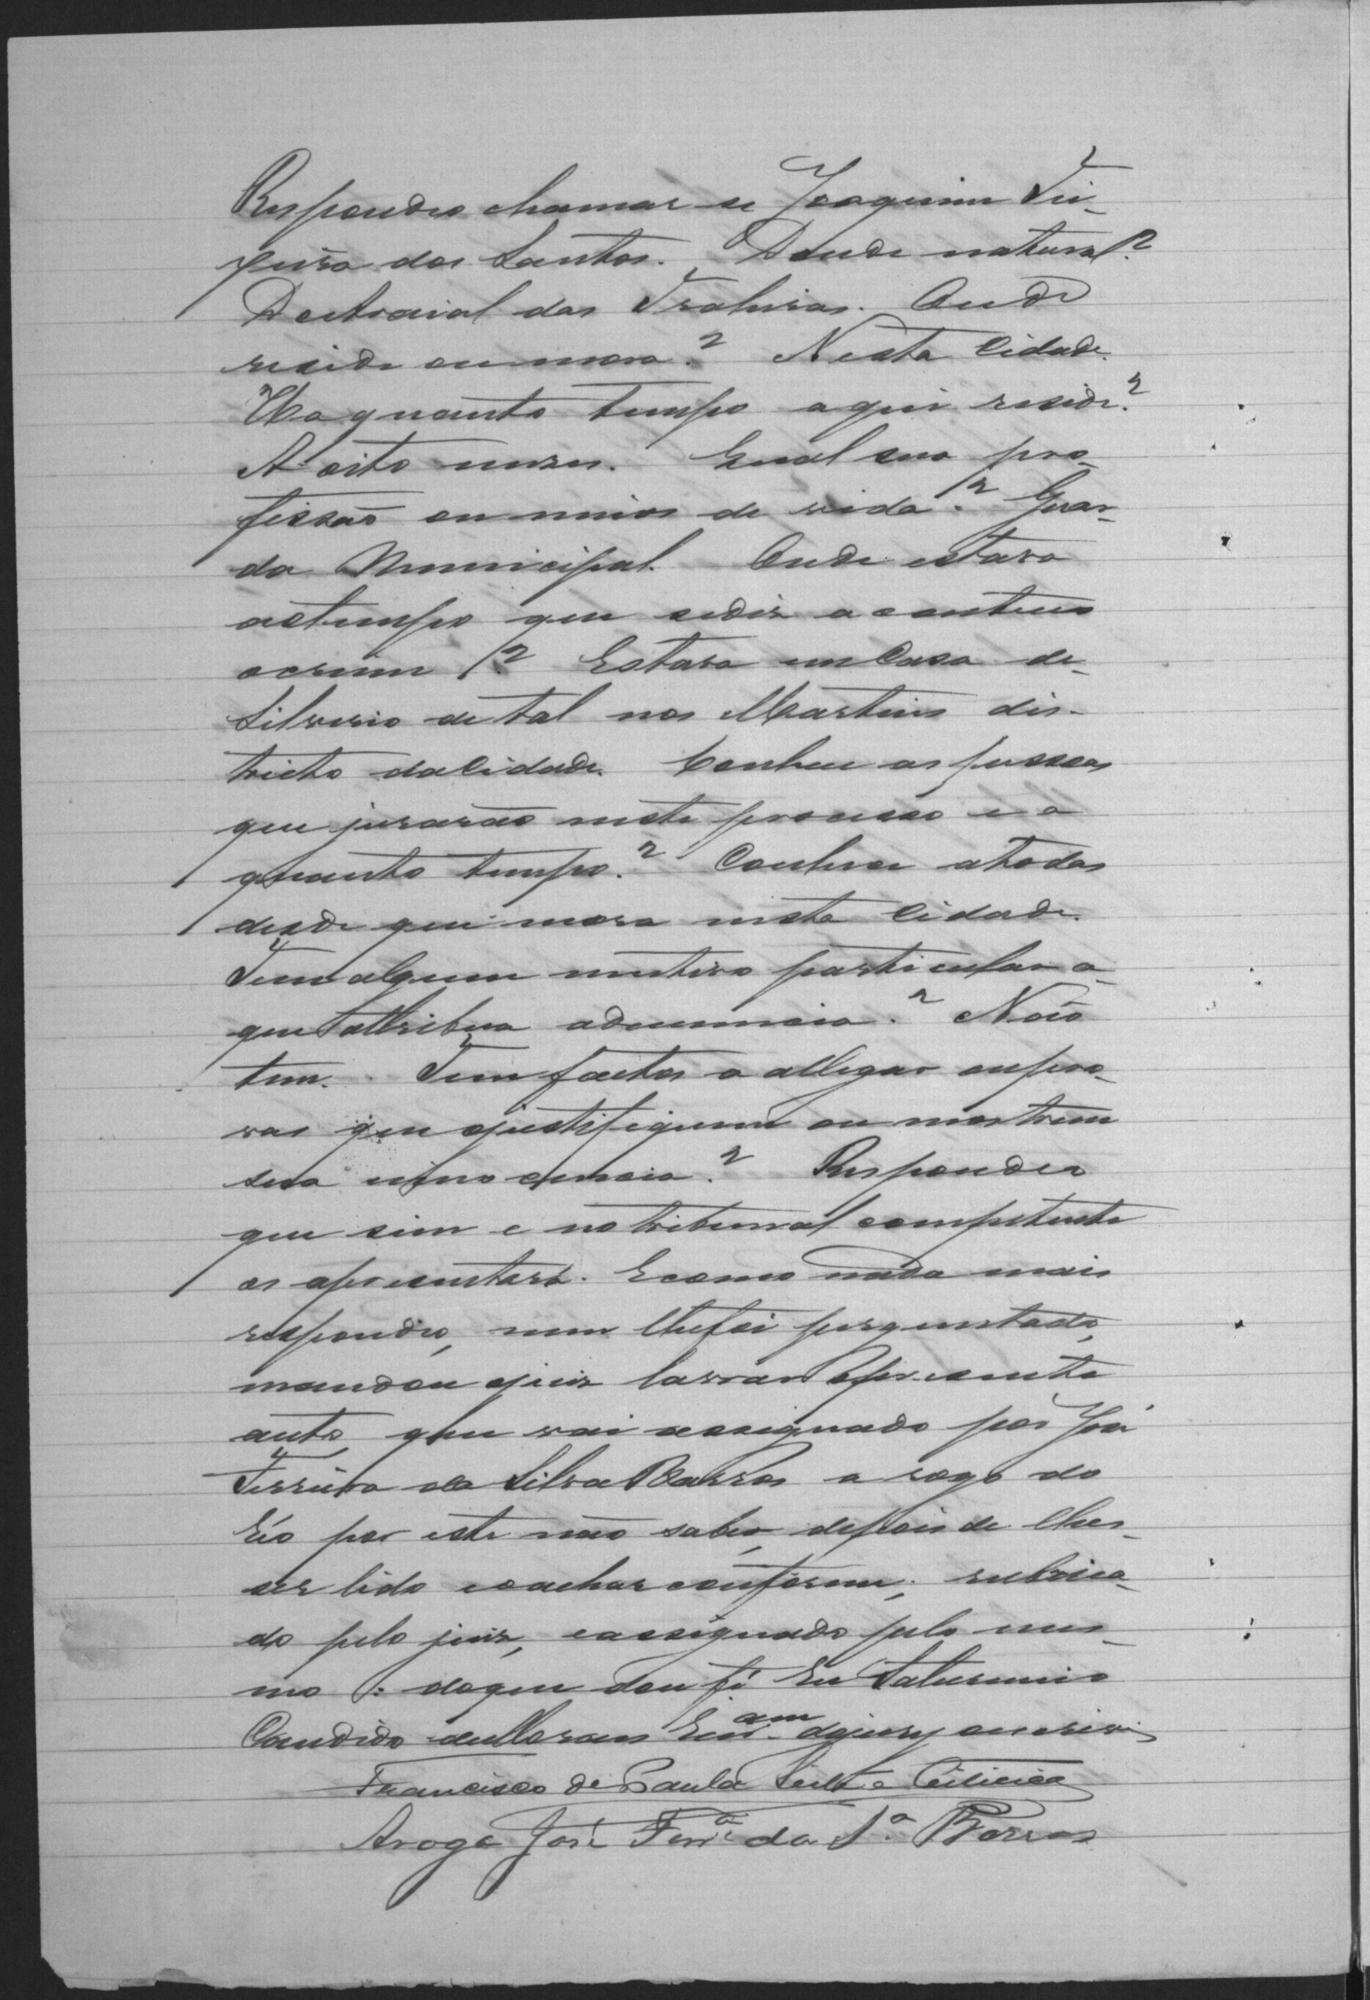 Respondeo chamar se Joaquim Tei-
xeira dos Santos. Donde natural?
Do Arraial das Trahiras. Onde
reside ou mora? Nesta Cidade.
Ha quanto tempo aqui reside?
A oito mezes. Qual sua pro-
fissão ou meios de vida? Guar-
da Municipal. Onde estava
ao tempo que se diz aconteceo
o crime? Estava em Casa de
Silverio de tal nos Martins dis-
tricto da Cidade. Conhece as pessoas
que jurarão neste processo e a
quanto tempo? Conhece a todas
desde que mora nesta Cidade.
Tem algum motivo particular a
que attribua a denuncia? Não
tem. Tem factos a allegar ou pro-
vas que o justifiquem ou mostrem
sua innocencia? Respondeo
que sim e no tribunal competente
os apresentará. E como nada mais
respondeo, nem lhe foi perguntado,
mandou o juiz lavrar o presente
auto, que vai assignado por José
Ferreira da Silva Barros a rogo do
Réo por este não saber, depois de lhe
ser lido e o achar conforme; rubrica-
do pelo juiz, e assignado pelo mes-
mo: do que dou fé Eu Saturnino
Candido de Moraes do jury o escrivi
Francisco de Paula Leite e
Arogo José Ferrª da Sª Barros